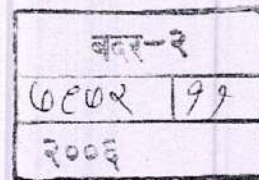 बदर-२
७९७२ | ११
२००६